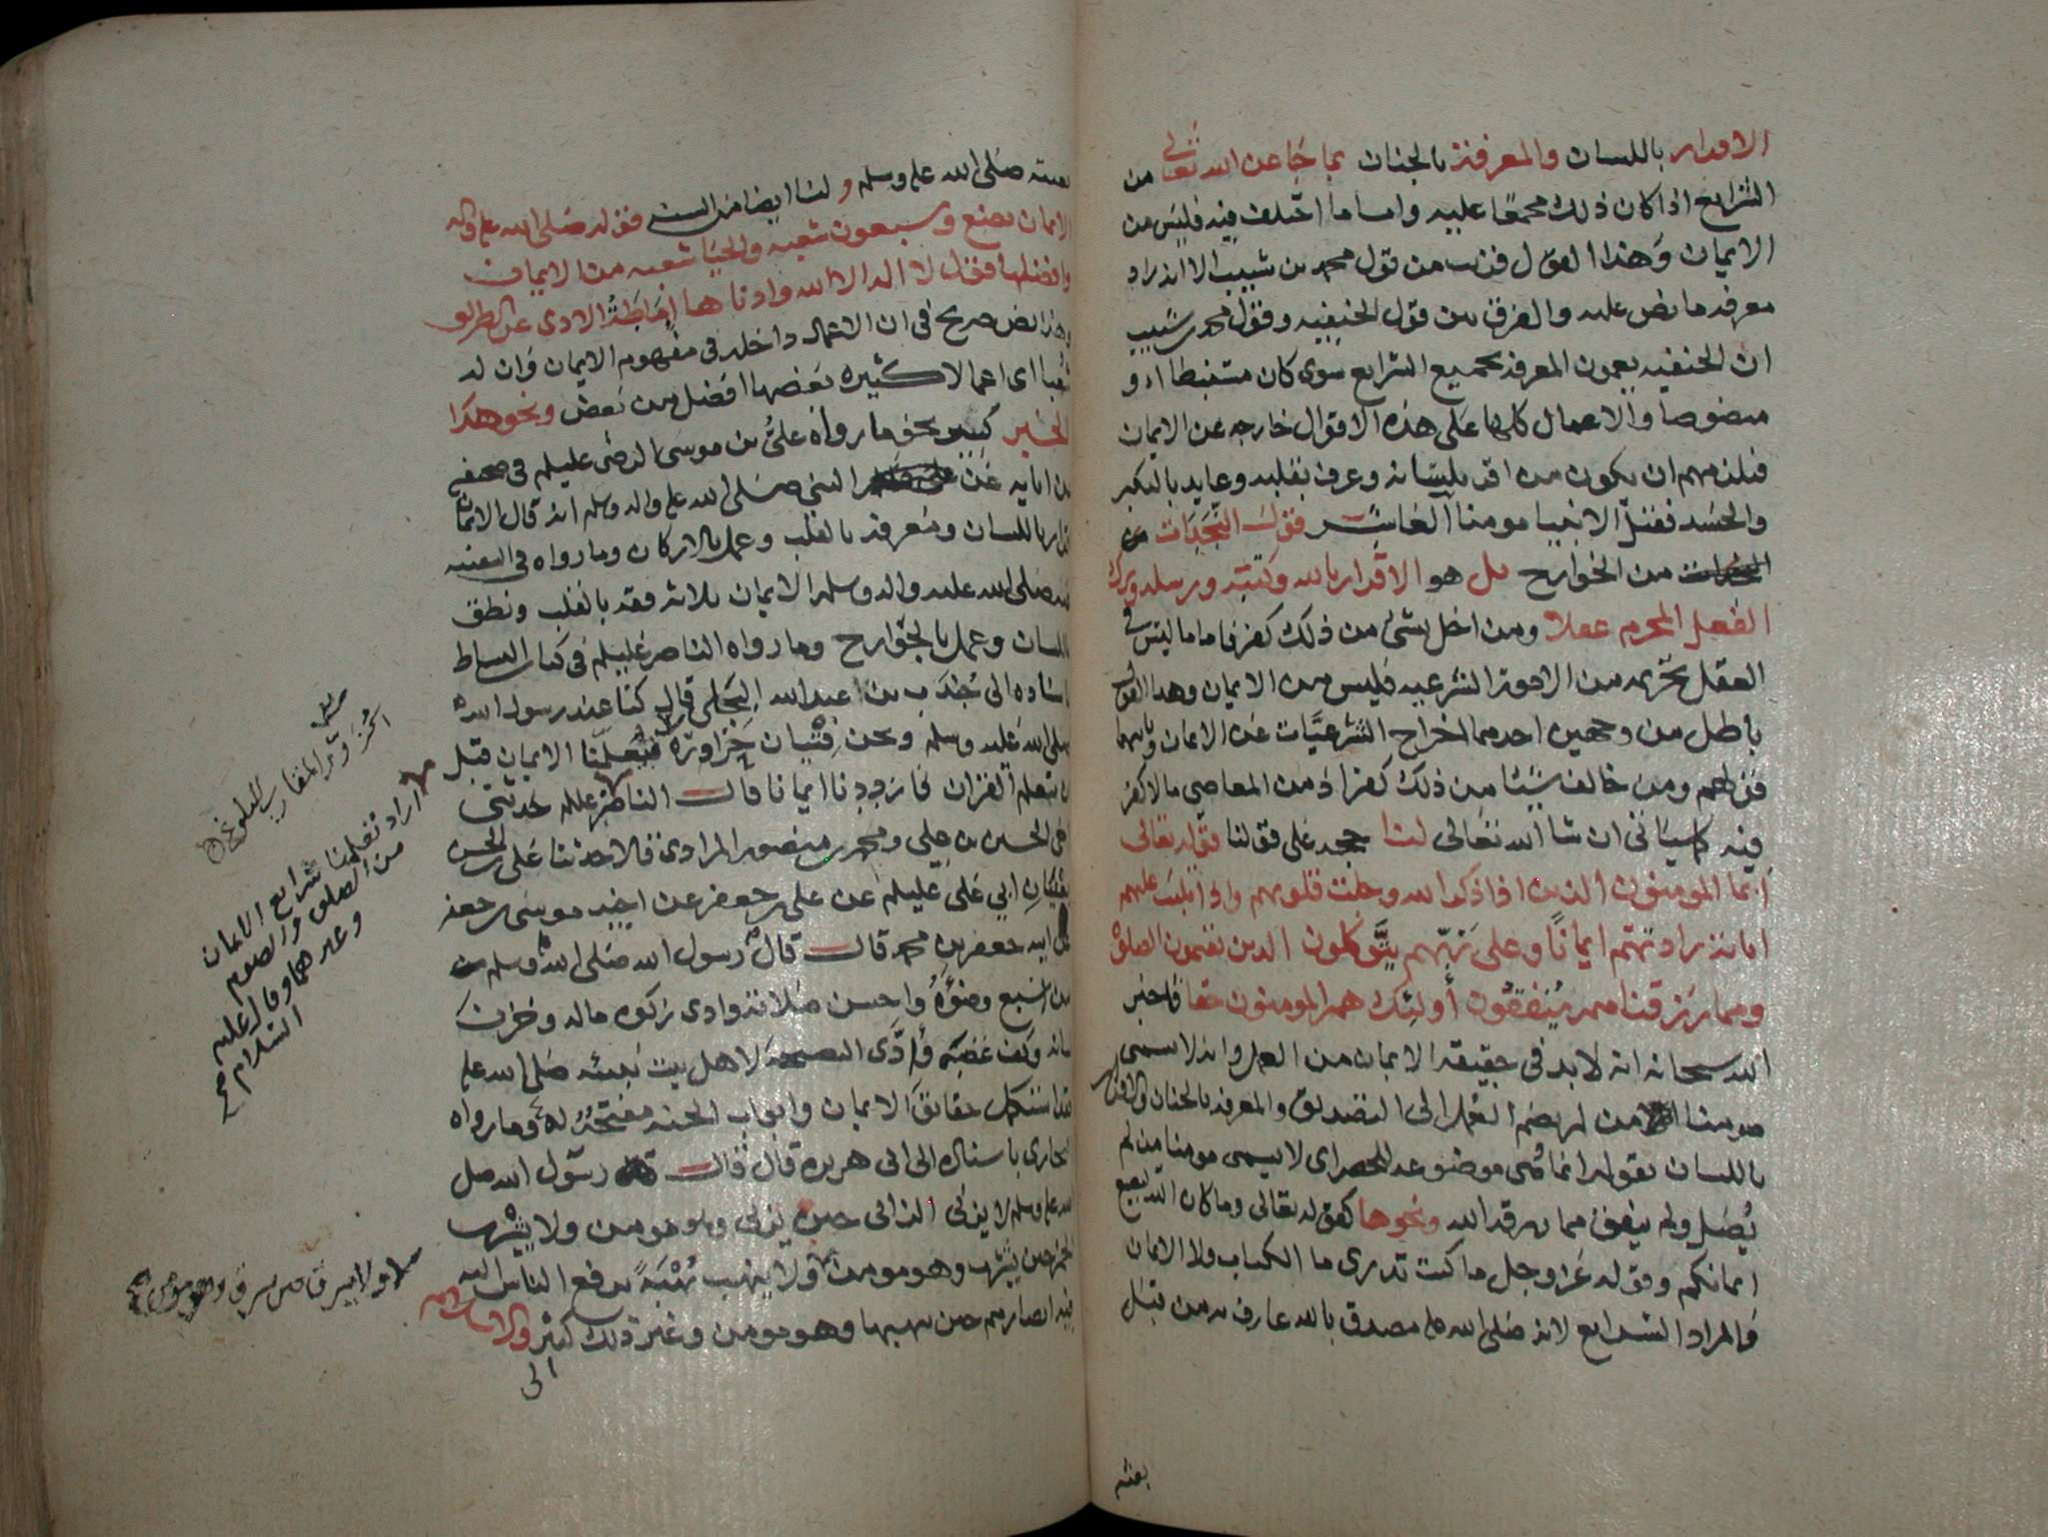 الاقرار باللسان والمعرفة بالجنان بما جا عن الله تعالى من
الشرايع اذا كان ذلك مجمعا عليه واما ما اختلف فيه فليس من
الايمان وهذا القول قريب من قول محمد بن شبيب الا انه زاد
معرفه ما نص عليه والفرق بين قول الحنيفيه وقول محمد بن شبيب
ان الحنفيه يعمون المعرفه بجميع الشرايع سوى كان مستنبطا او
منصوصا والاعمال كلها على هذه الاقوال خارجه عن الايمان
فيلزمهم ان يكون من اقر بلسانه وعرف بقلبه وعابد بالكبر
والحسد فقتل الانبيا مومنا العاشر قول النجدات من
من الخوارج بل هو الاقرار بالله وكتبه ورسله وترك
الفعل المحرم عقلا ومن اخل بشئ من ذلك كفر فاما ما ليس في
العقل تحريمه من الامور الشرعيه فليس من الايمان وهذا القول
باطل من وجهين احدهما اخراج الشرعيات عن الايمان وثانيهما
قولهم ومن خالف شيئا من ذلك كفر اذ من المعاصي ما لا كفر
فيه كما سياتي ان شا الله تعالى لنا حجه على قولنا قوله تعالى
انما المومنون الذين اذا ذكر الله وجلت قلوبهم واذا تليت عليهم
اياته زادتهم ايمانا وعلى ربهم يتوكلون الذين يقيمون الصلوة
ومما رزقناهم ينفقون أولئك هم المومنون حقا فاخبر
الله سبحانه انه لا بد في حقيقه الايمان من العمل وانه لا يسمى
مومنا الا من لم يضم العمل الى التصديق والمعرفه بالجنان والاقرار
باللسان بقوله انما هي موضوعه للحصر اي لا يسمى مومنا من لم
يصل ولم ينفق مما رزقه الله ونحوها كقوله تعالى وما كان الله ليضيع
ايمانكم وقوله عز وجل ما كنت تدري ما الكتاب ولا الايمان
فالمراد الشرايع لانه صلى الله عليه مصدق بالله عارف به من قبل
بعثته
بعثته صلى الله عليه وسلم ولنا ايضا من السنه قوله صلى الله عليه واله
الايمان بضع وسبعون شعبه والحيا شعبه من الايمان
وافضلها قول لا اله الا الله وادناها إماطة الاذى عن الطريق
وهذا نص صريح في ان الاعمال داخله في مفهوم الايمان وان له
شعبا اي اعمالا كثيره بعضها افضل من بعض ونحو هذا
الخبر كثير نحو ما رواه علي بن موسى الرضى عليلم في صحيفته
عن ابايه عن النبي صلى الله عليه واله وسلم انه قال الايمان
اقرار باللسان ومعرفه بالقلب وعمل بالاركان وما رواه في
عنه صلى الله عليه واله وسلم الايمان ثلاثه عقد بالقلب ونطق
باللسان وعمل بالجوارح وما رواه الناصر عليلم في كتاب البساط
باسناده الى جندب بن عبد الله البجلي قال كنا عند رسول الله
صلى الله عليه وسلم ونحن فتيان حزاورة فيعلمنا الايمان قبل
ان نتعلم القران فازددنا ايمانا قال الناصر عللم حدثني
اخي الحسين بن علي ومحمد بن منصور المرادي قالا حدثنا علي بن الحسن
يعنيان ابي علي عليلم عن علي بن جعفر عن اخيه موسى بن جعفر
عن ابيه جعفر بن محمد قال قال رسول الله صلى الله وسلم
من اسبغ وضوءه واحسن صلاته وادى زكوه ماله وخزن
لسانه وكف غضبه وأدى النصيحه لاهل بيت نبيه صلى الله عليه
فقد استكمل حقايق الايمان وابواب الجنه مفتحة له وما رواه
البخاري باسناده الى ابي هريره قال قال رسول الله صلى
الله عليه وسلم لا يزني الزاني حين يزني وهو مومن ولا يشرب
الخمر حين يشرب وهو مومن ولا ينهب نهبة يرفع الناس اليه
فيه ابصارهم حين ينهبها وهو مومن وغير ذلك كثير والاسلام
الى
اراد تعليمنا شرايع الايمان
من الصلوة والصوم
وغيرهما وقال عليه
السلام
الحزور المقارب للبلوغ
ولا يسرق حين يسرق وهو مومن